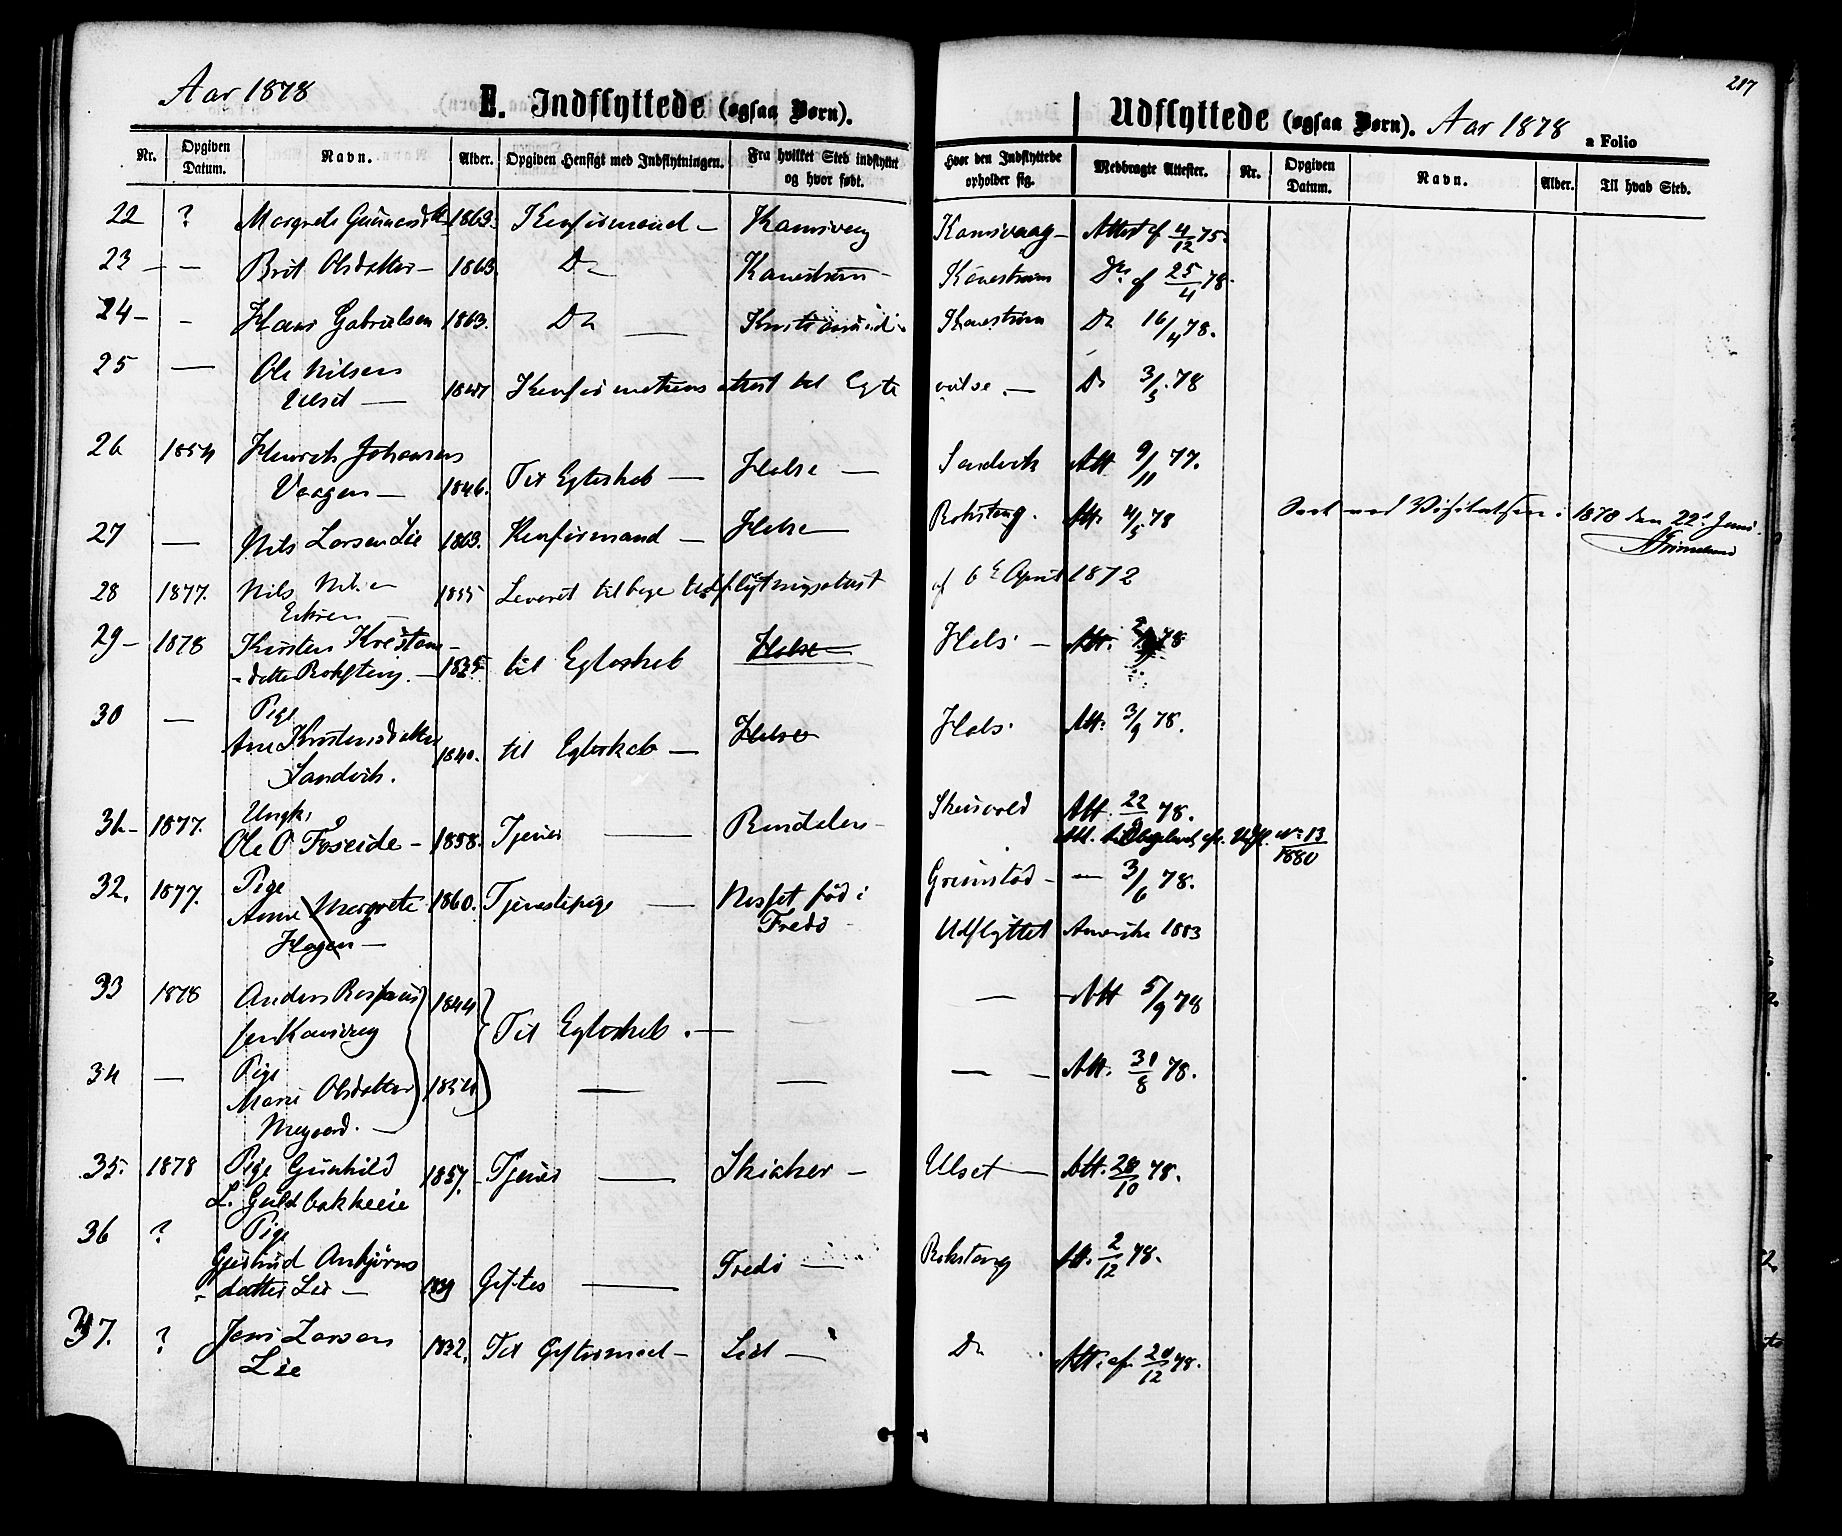 Aar 1878
E. Indflyttede (ogsaa Børn).
Udflyttede (ogsaa Børn). Aar 1878
287
a Folio
Nr. Opgiven Datum. Navn. Alder. Opgiven Hensigt med Indflytningen. Fra hvilket Sted indflyttet og hvor født. Hvor den Indflyttede opholder sig. Medbragte Attester. Nr. Opgiven Datum. Navn. Alder. Til hvad Sted.
22 ? Margrete 1863. Konfirmand – Kamsvaag – Attest af 4/12 75.
23 – – Brit Olsdatter – 1863. Do Kanestrøm – Kanestrøm Do af 25/4 78.
24 – – Hans Gabrielsen 1863. Do — Kanestrøm Do 16/4 78.
25 — Ole Nilsen
Ulset — Konfirmations attest til Egte vielse. — Do 3/5. 78
26 1854 Henrik Johansens
Vaagen — 1846. Til Egteskab — Halse — Sandvik Att 9/11 77.
27 — Nils Larsen Lie 1863. Konfirmand — Halse — Rokstang. Att. 4/5. 78
Seet ved Visitatsen i 1878 den 22d Juni.
28 1877. Nils
1855 Leveret tilbage Udflytningsattest af 6te April 1872
29 – 1878 Kirsten Kristens-
-datter Rokstang. — 1835. til Egteskab Halse Hals. — Att. 78
30 — Pige
Ane Kristensdatter
Sandvik. 1840. til Egteskab — Halse Hals. Att. 3/9 78.
31 – 1877. Ungk.
Ole O Foseide – 1858. Tjener — Rindalen – Skeisvold Att. 22/9 78.
Att. tilbagelevt efr. Udfl. No 13/1880
32. 1877. Pige
Anne Margrete
Hagen — 1860. Tjenestepige — Nesset fød i
Fredø – Grimstad – — 3/6 78.
Udflyttet Amerika 1883
33 1878 Anders Rasmus
sen Kamsvaag 1844 Til Egteskab. — — Att 5/9 78
34 — Pige
Marie Olsdatter
1854 — — — – Att. 31/8 78.
35. 1878 Pige Gunhild
L. Guldbakkeeie 1857. Tjener — Skiaker – Ulset — Att. 28/10 78.
36 ? Pige
Gjertrud Ankjørns
-datter Lie — 1839 Giftes — Fredø — Rokstang Att. 2/12 78.
37. ? Jens Larsen
Lie 1832. Til Giftermaal – Lid — Do Att. af 20/12 78.